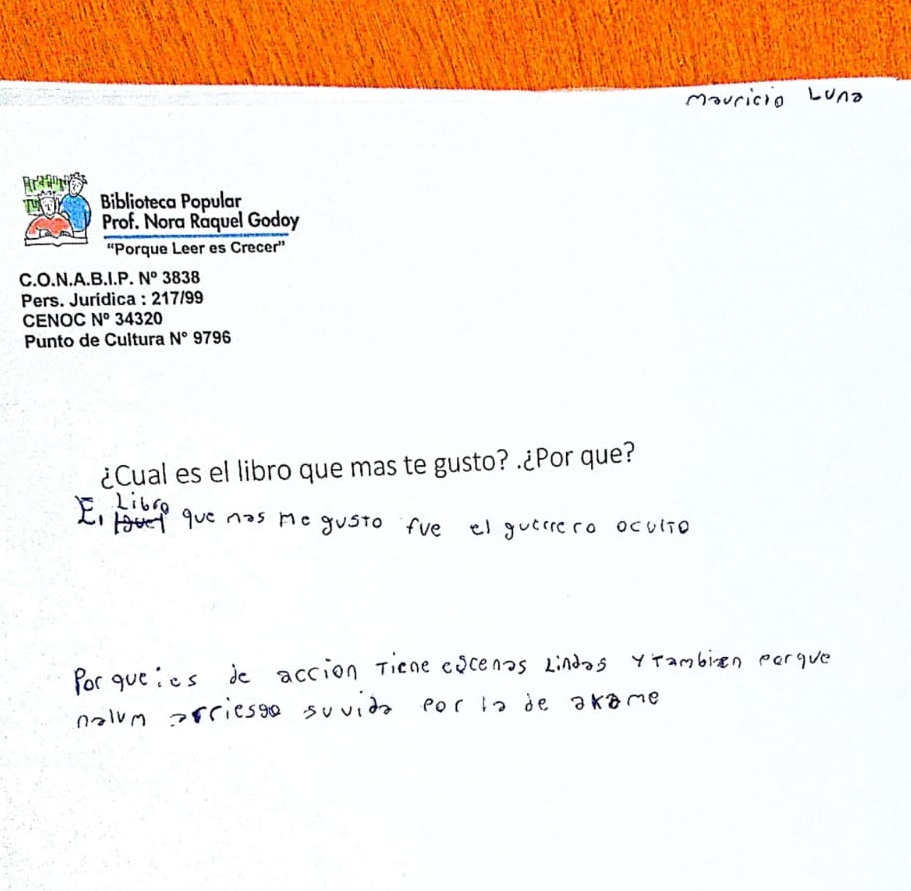 Mauricio Luna
Biblioteca Popular
Prof. Nora Raquel Godoy
"Porque Leer es Crecer"
C.O.N.A.B.I.P. Nº 3838
Pers. Jurídica : 217/99
CENOC Nº 34320
Punto de Cultura Nº 9796
¿Cual es el libro que mas te gusto? .¿Por que?
El Libro que mas me gusto fue el guerrero oculto
Por que: es de accion Tiene escenas Lindas Y Tambien porque
nalum arriesga su vida por la de akame